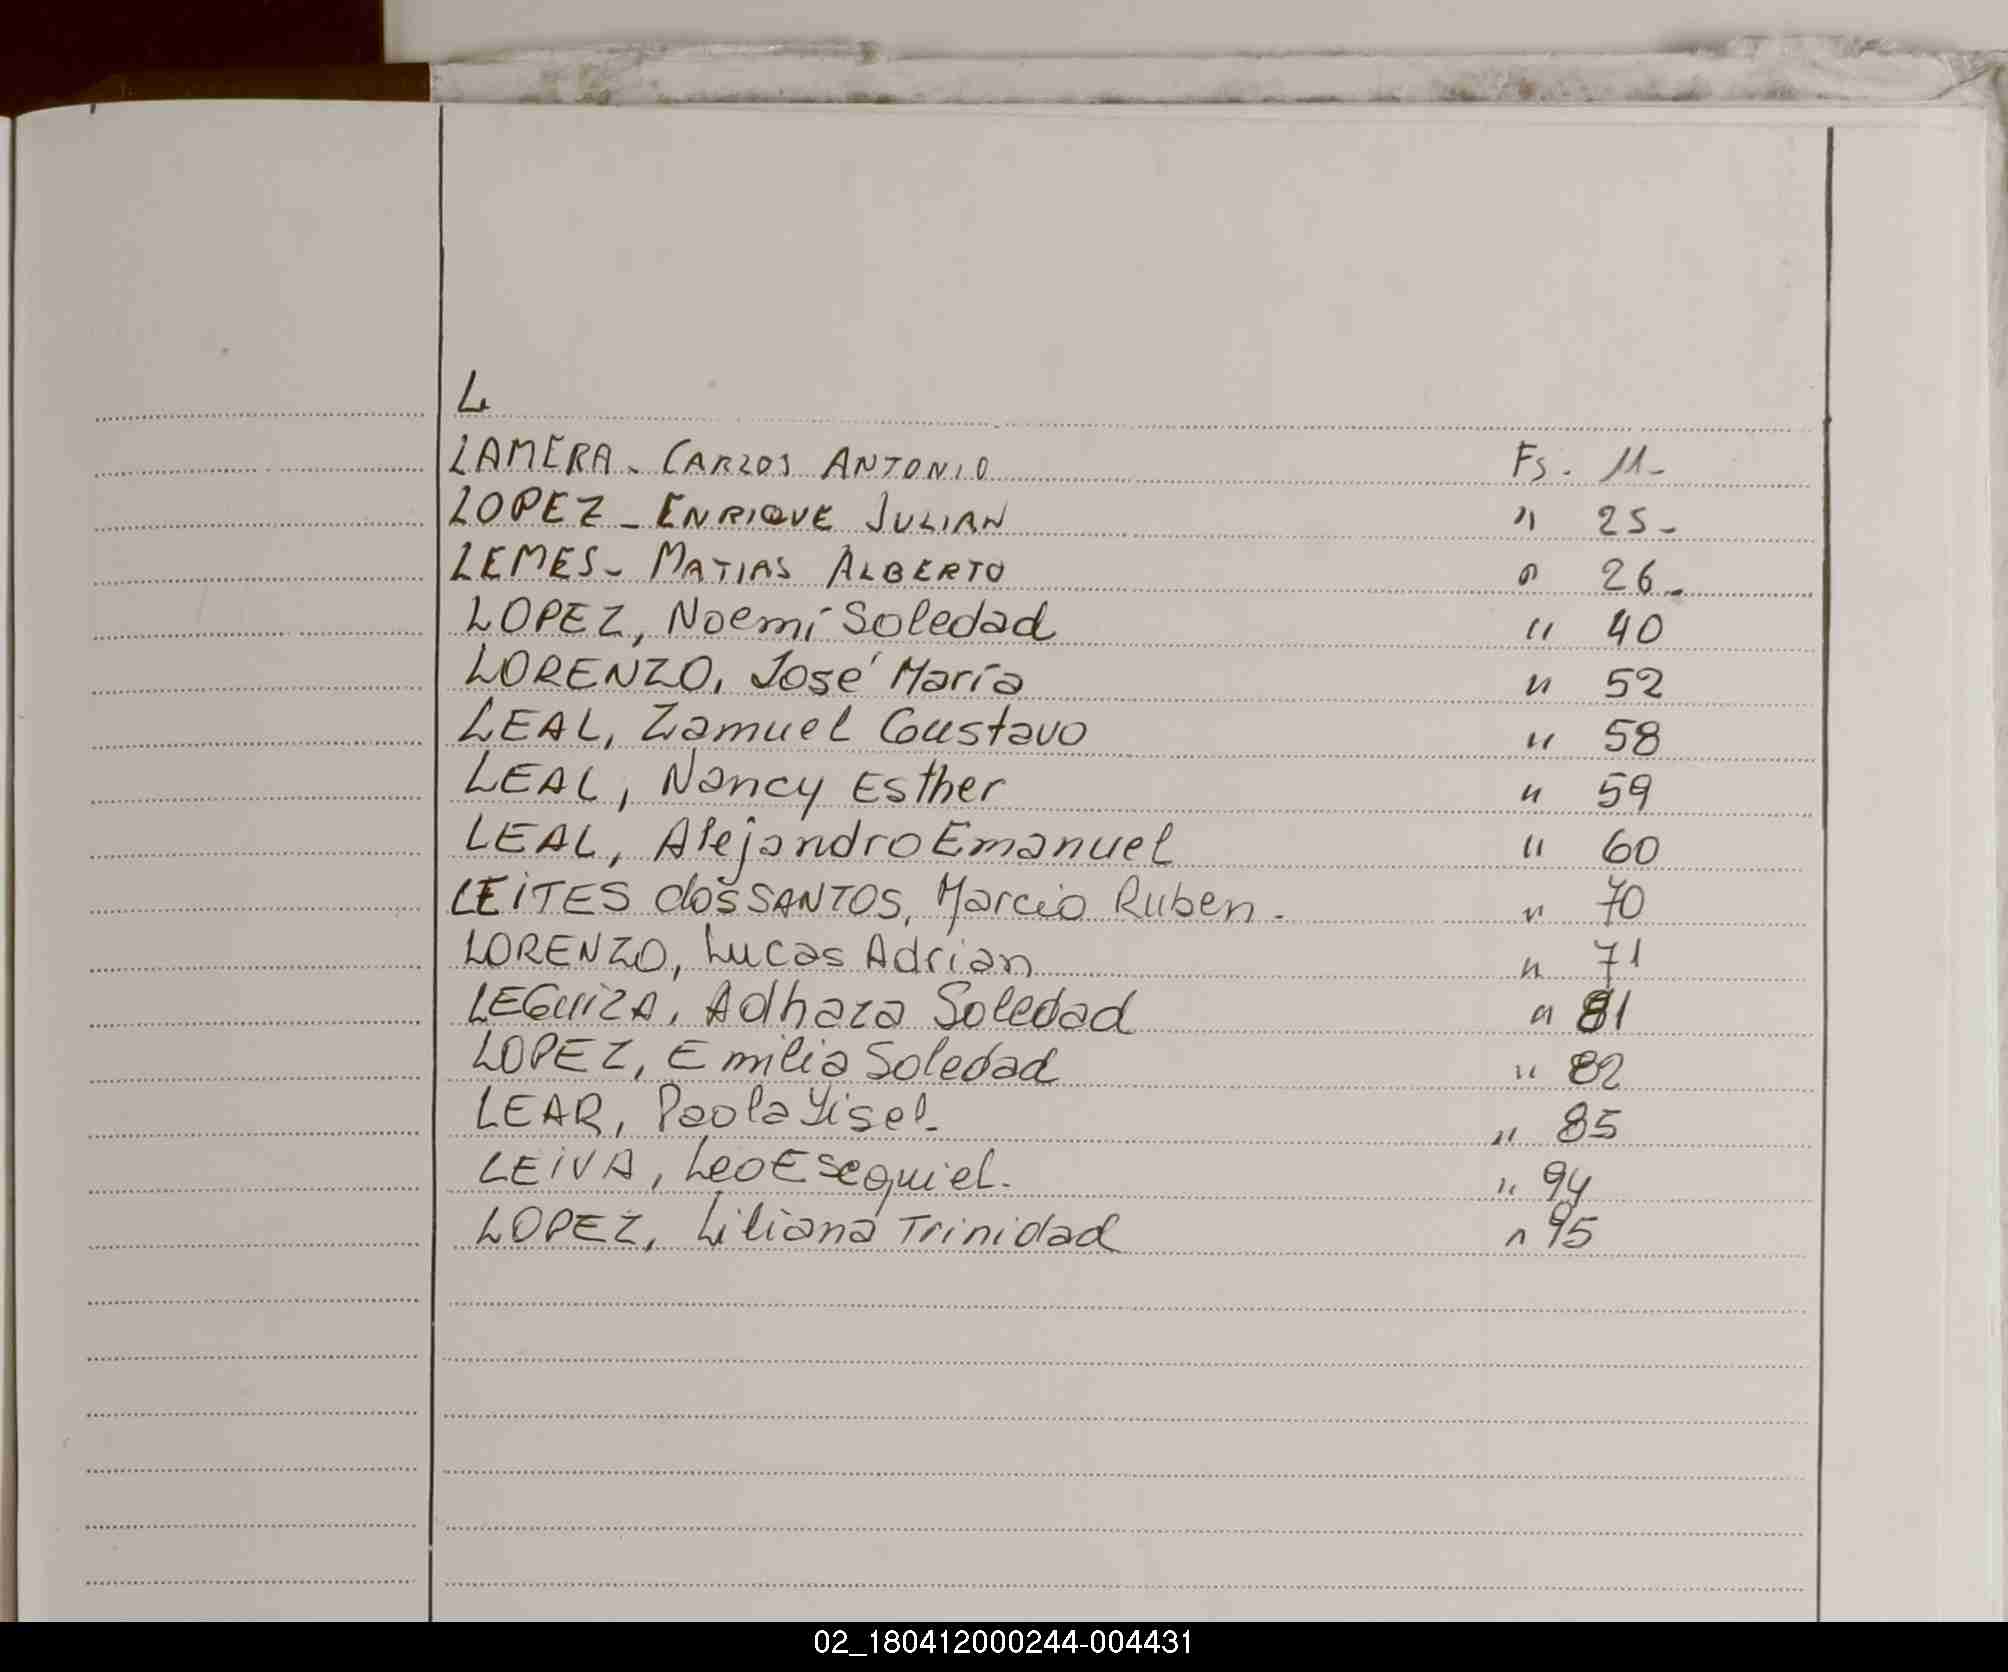 L
LAMERA - CARLOS ANTONIO Fs. 11-
LOPEZ - ENRIQUE JULIAN " 25-
LEMES - MATIAS ALBERTO " 26-
LOPEZ, Noemí Soledad " 40
LORENZO, José María " 52
LEAL, Zamuel Gustavo " 58
LEAL, Nancy Esther " 59
LEAL, Alejandro Emanuel " 60
LEITES dos SANTOS, Marcio Ruben. " 70
LORENZO, Lucas Adrian " 71
LEGUIZA, Adhara Soledad " 81
LOPEZ, Emilia Soledad " 82
LEAR, Paola Yisel. " 85
LEIVA, Leo Esequiel. " 94
LOPEZ, Liliana Trinidad " 95
02_180412000244-004431